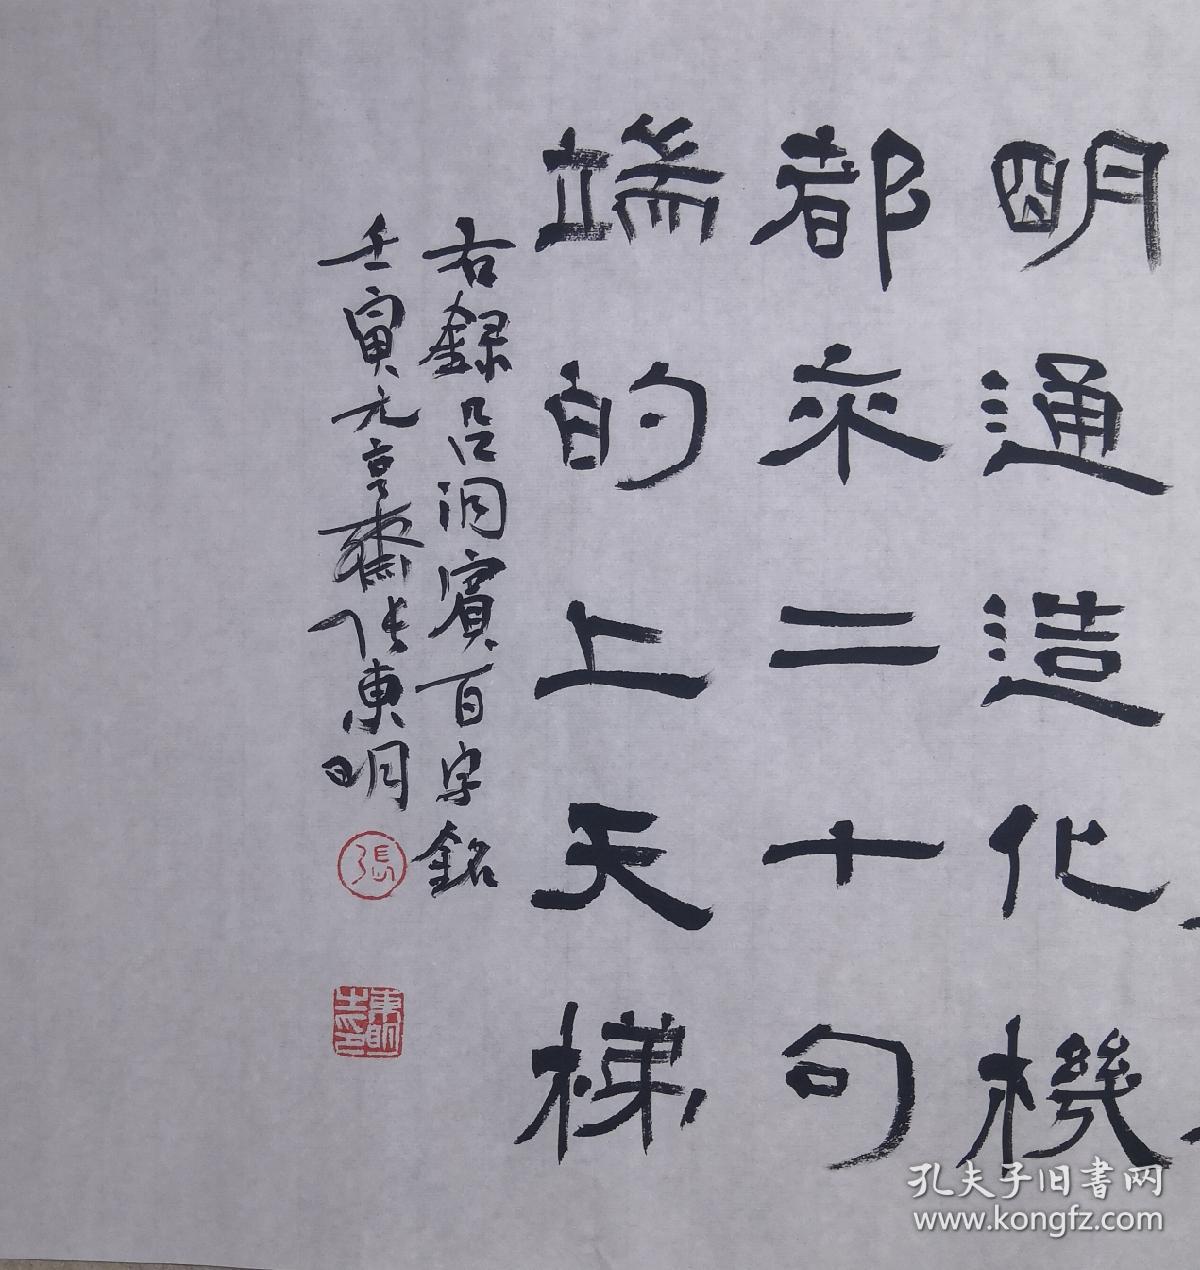 明通造化機
都來二十句
端的上天梯
右録吕洞賓百字銘
壬寅元亨齋張東明
張
東明之印
孔夫子旧書网
www.kongfz.com